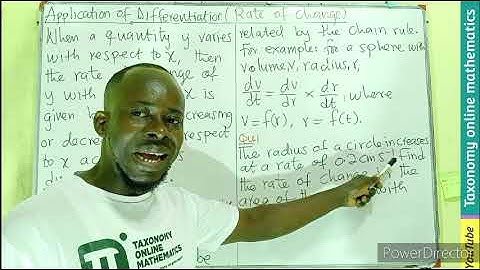 Application of Differentiation (Rate of Change)
When a quantity y varies
with respect to x, then
the rate change of
y with
given b
or decrea
to x ac
be
related by the chain rule.
For example: for a sphere with
volume, v, radius, r,
dv/dt = dv/dr × dr/dt, where
v = f(r), r = f(t).
Qu1
The radius of a circle increases
at a rate of 0.2cms⁻¹. Find
the rate of change the
area of with
TAXONOMY
ONLINE
MATHEMATICS
Taxonomy online mathematics
YouTube
PowerDirector